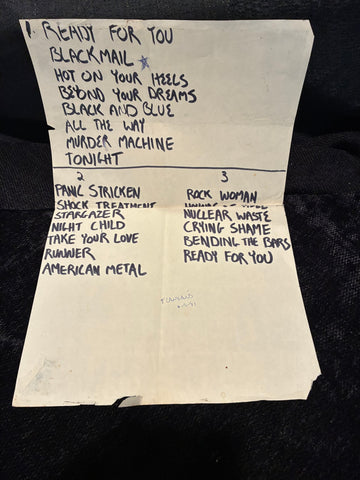 1. READY FOR YOU
BLACKMAIL
HOT ON YOUR HEELS
BEYOND YOUR DREAMS
BLACK AND BLUE
ALL THE WAY
MURDER MACHINE
TONIGHT
2
PANIC STRICKEN
SHOCK TREATMENT
STARGAZER
NIGHT CHILD
TAKE YOUR LOVE
RUNNER
AMERICAN METAL
3
ROCK WOMAN
NUCLEAR WASTE
CRYING SHAME
BENDING THE BARS
READY FOR YOU